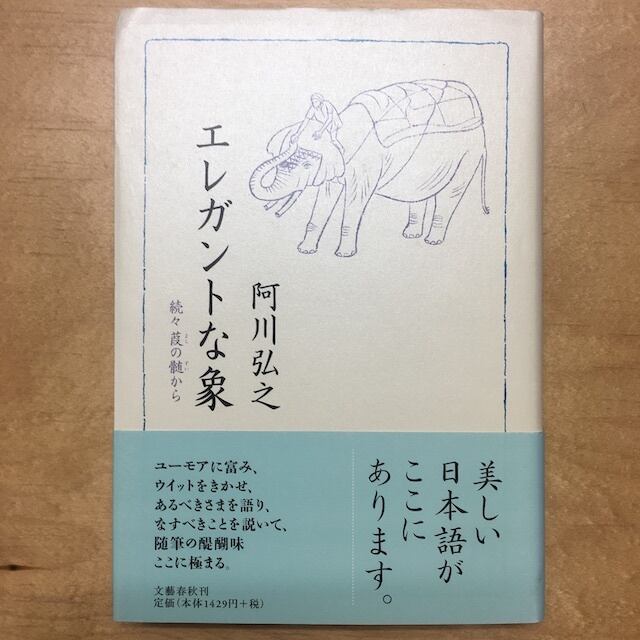 エレガントな象
続々 葭の髄から
よし ずい
阿川弘之
美しい
日本語が
ここに
あります。
ユーモアに富み、
ウイットをきかせ、
あるべきさまを語り、
なすべきことを説いて、
随筆の醍醐味
ここに極まる。
文藝春秋刊
定価（本体1429円+税）